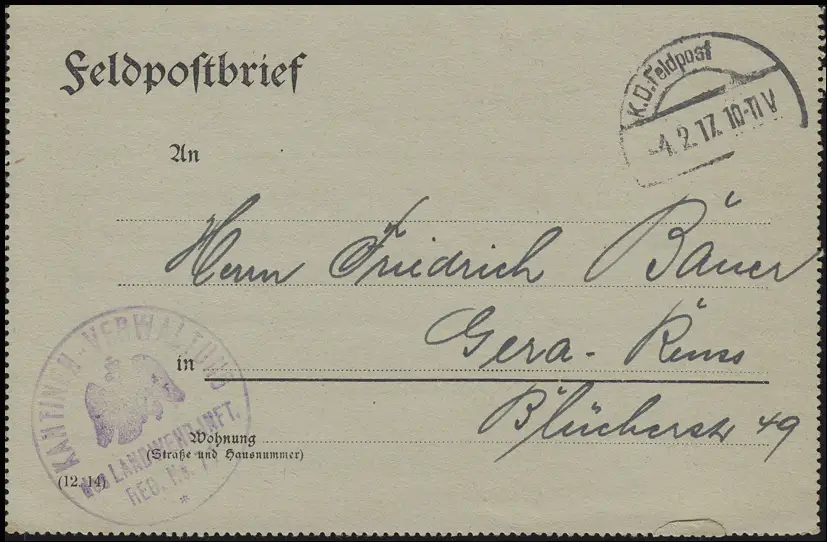 Feldpostbrief
K.D. Feldpost
-4.2.17. 10-11 V
An
Herrn Friedrich Bauer
in Gera - Reuss
Blücherstr 49
Wohnung
(Straße und Hausnummer)
(12. 14)
KANTINEN-VERWALTUNG
DES LANDWEHR INFT.
REG. No. 7
*